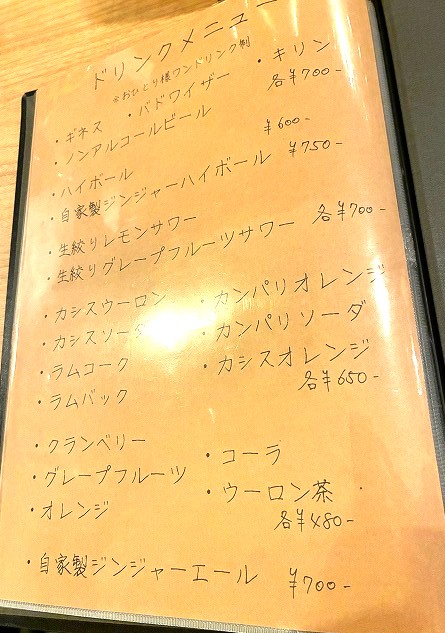 ドリンクメニュー
※おひとり様ワンドリンク制
・ギネス ・バドワイザー ・キリン
・ノンアルコールビール 各¥700-
・ハイボール ¥600-
・自家製ジンジャーハイボール ¥750-
・生絞りレモンサワー
・生絞りグレープフルーツサワー 各¥700-
・カシスウーロン ・カンパリオレンジ
・カシスソーダ ・カンパリソーダ
・ラムコーク ・カシスオレンジ
・ラムバック 各¥650-
・クランベリー ・コーラ
・グレープフルーツ ・ウーロン茶
・オレンジ 各¥480-
・自家製ジンジャーエール ¥700-